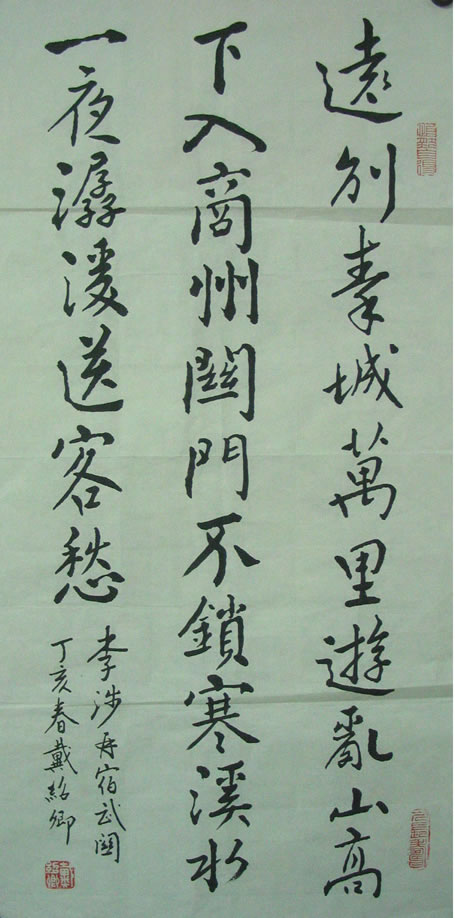 遠別秦城萬里遊亂山高
下入商州關門不鎖寒溪水
一夜潺湲送客愁
李涉再宿武關
丁亥春戴紹卿